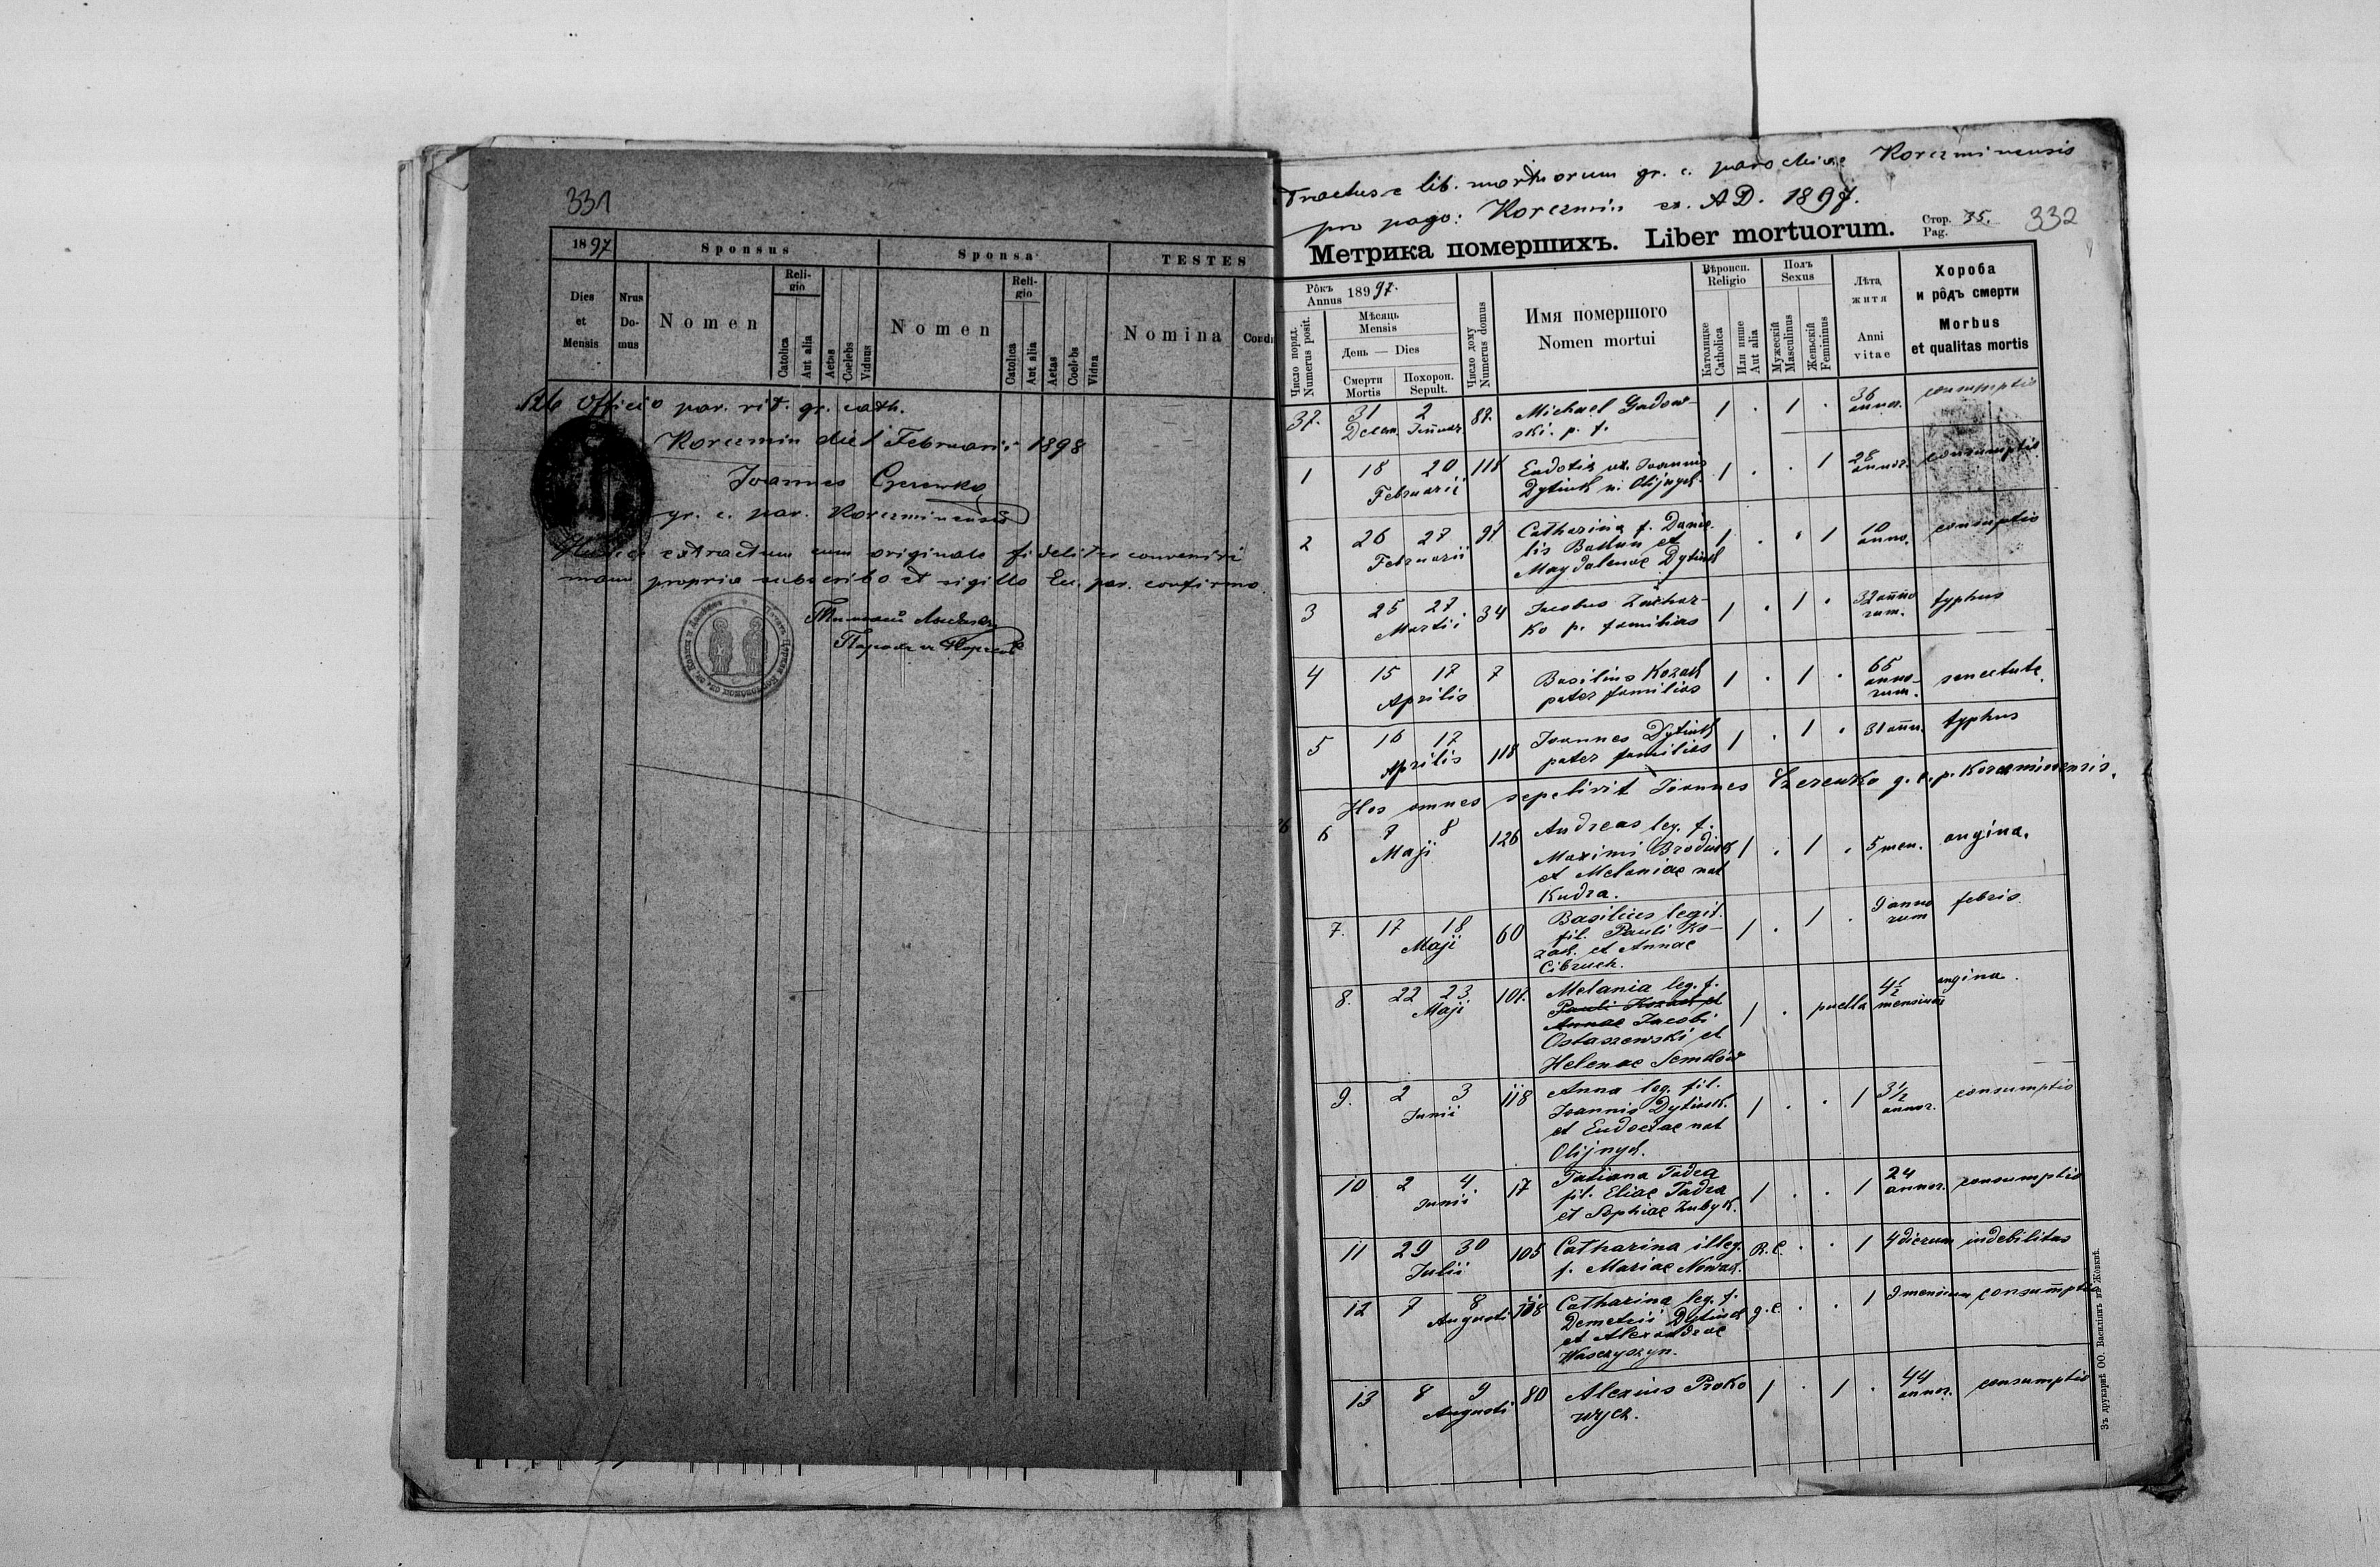 331
1897
Sponsus
Sponsa
TESTES
Dies et Mensis
Nrus Do- mus
Nomen
Reli- gio
Catolica
Aut alia
Aetas
Coelebs
Viduus
Nomen
Reli- gio
Catolica
Aut alia
Aetas
Coelebs
Vidua
Nomina
officio par. rit. gr. cath.
Korczmin die 1 Februarii 1898
Joannes Czerewko
gr. c. par. Korczminensis
extractum cum originale fideliter convenire
manu propria subscribo et sigillo Ec. par. confirmo.
Tractus e lib. mortuorum gr. c. parochiae Korczminensis
pro pago: Korczmin ex. AD. 1897.
Метрика помершихъ. Liber mortuorum.
Стор. Pag. 35.
332
Рôкъ Annus 1897.
Число поряд. Numerus posit.
Мѣсяць Mensis
День — Dies
Смерти Mortis
Похорон. Sepult.
Число дому Numerus domus
Имя помершого
Nomen mortui
Вѣроисп. Religio
Католицке Catholica
Или инше Aut alia
Полъ Sexus
Мужескій Masculinus
Женьскій Femininus
Лѣта житя
Anni vitae
Хороба и рôдъ смерти
Morbus et qualitas mortis
37. 31 2 87. Michael Gadow- 1 . 1 . 36 consumptio
Decem. Januar. ski. p. f. annor.
1 18 20 118 Eudotia ux. Joannis 1 . . 1 28 consumptio
Februarii Dytiuk n. Olijnyk. annor.
2 26 27 97 Catharina f. Danie- 1 . . 1 10 consumptio
Februarii lis et anno.
Magdalenae Dytiuk
3 25 27 34 Jacobus Zachar- 1 . 1 . 32 anno typhus
Martii ko p. familias rum.
4 15 17 7 Basilius Kozak 1 . 1 . 65 senectute
Aprilis pater familias anno- rum.
5 16 17 118 Joannes Dytiuk 1 . 1 . 31 ann. typhus
Aprilis pater familias
Hos omnes sepelivit Joannes Czerewko g. c. p. Korczminensis.
6 7 8 126 Andreas leg. f. 1 . 1 . 5 men. angina.
Maji Maximi Brodiuk
et Melaniae nat
Kudra.
7. 17 18 60 Basilius legit. 1 . 1 . 9 anno febris
Maji fil. Pauli Ko- rum
zak. et Annae
Cibruch.
8. 22 23 101. Melania leg. f. 1 . puella 4½ angina.
Maji Pauli Kozak et mensium
Annae Jacobi
Ostaszewski et
Helenae
9. 2 3 118 Anna leg. fil. 1 . . 1 3½ consumptio
Junii Joannis Dytiuk. annor.
et Eudociae nat
Olijnyk.
10 2 4 17 Tatiana Tadra 1 . . 1 24 consumptio
Junii fil. Eliae Tadra annor.
et Sophiae Zubyk.
11 29 30 105 Catharina illeg. R.C. . . 1 4 dierum indebilitas
Julii f. Mariae Nowak.
12 7 8 118 Catharina leg. f. g.c . . 1 9 mensium consumptio
Augusti Demetrii Dytiuk
et Alexandrae
Wasczyszyn.
13 8 9 80 Alexius Proko 1 . 1 . 44 consumptio
Augusti wycz. annor.
Зъ друкарнѣ ОО. Василіянъ въ Жовквѣ.